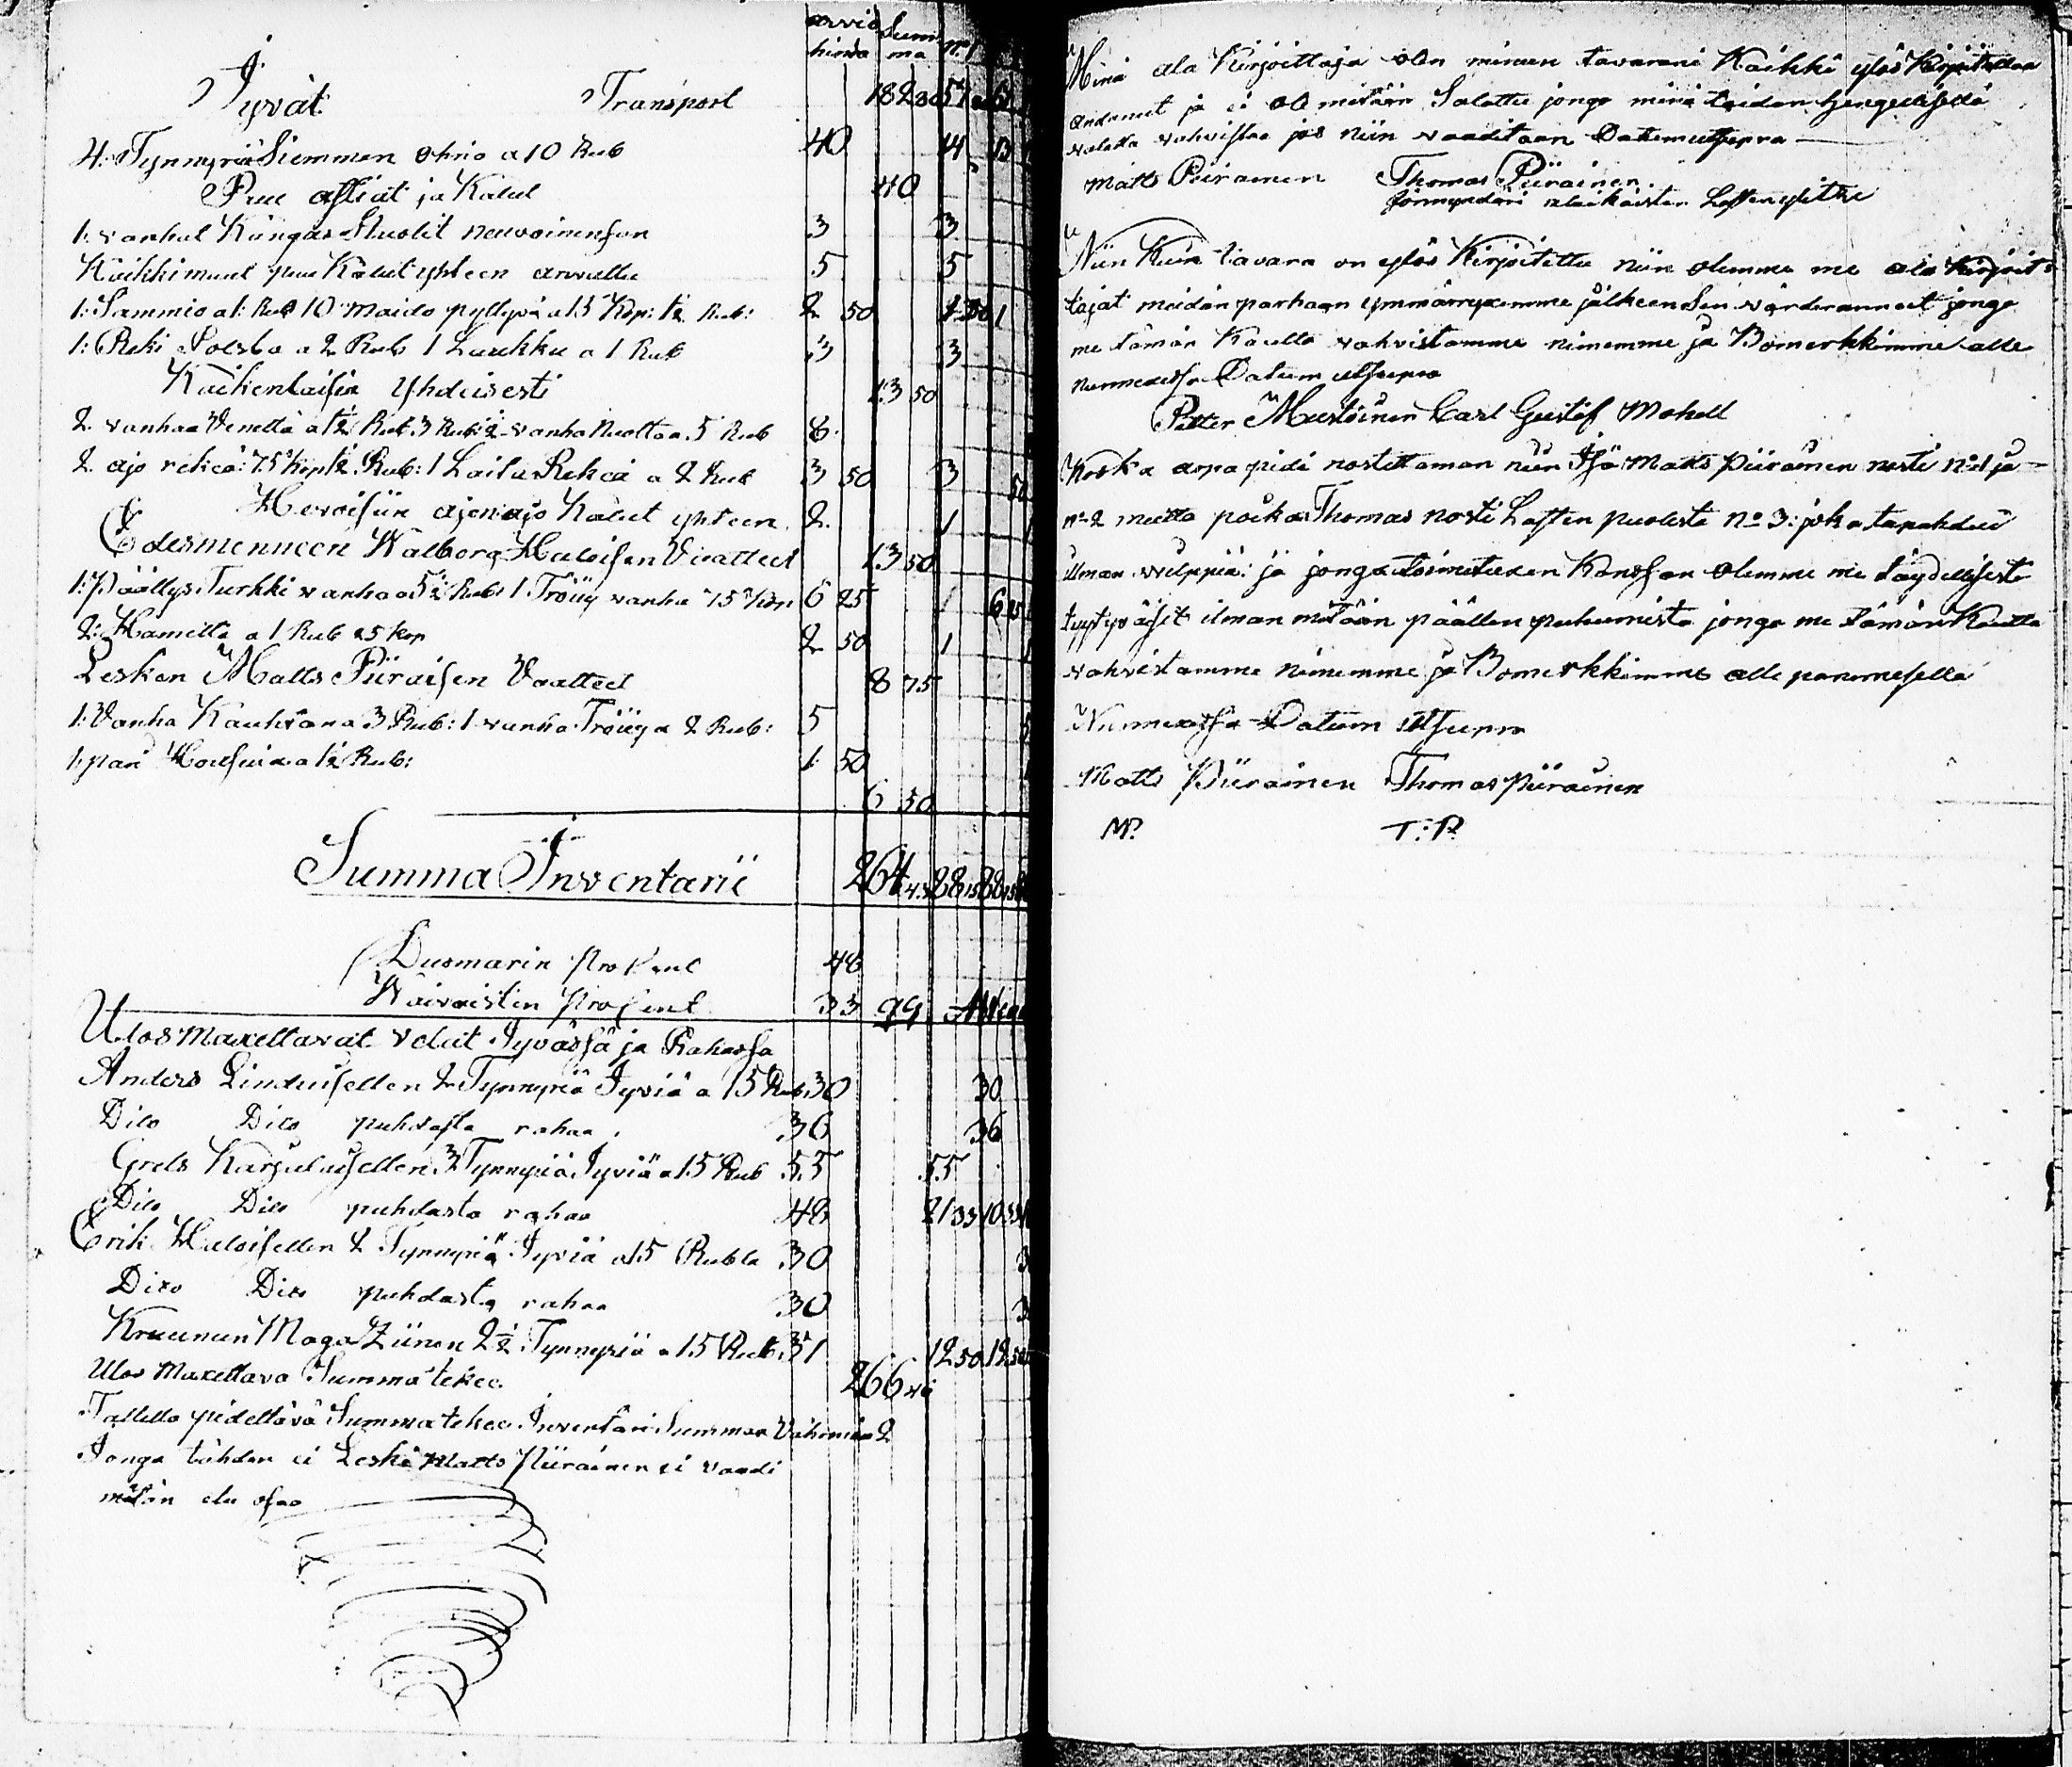 arvio hinda Summa No 1
Jyvät Transport 182 30 57
4: Tynnyriä Siemmen ohrio a 10 Rub 40 14 13
Puu astiat ja Kalut 40
1. vanhat Kangas Stuolit neuvoinensan 3 3
Kaikki muut puu Kalut yhteen arvattu 5 5
1: Sammio a 1: Rub 10 Maido pyttyä a 15 Kop: 1½ Rub: 2 50 1
1: Reki Poesta a 2 Rub 1 Laukku a 1 Rub 3 3
Kaikenlaisia Yhdeisesti 13 50
2 vanhaa Venettä a 1½ Rub 3 Rub: 2 vanha Nuottaa 5 Rub 8
2 ajo rekeä: 75 kop 1½ Rub: 1 Laitu Rekeä a 2 Rub 3 50 3 50
Hevoisiin ajo Kalut yhteen 2 1
Edesmenneen Walborg Huloisen Vaatteet 13 50
1: Päällys Turkki vanha a 5½ Rub: 1 Tröijy vanha 75 Kop 6 25 1 6 25
2: Hametta a 1 Rub 25 kop 2 50 1
Lesken Matts Piiraisen Vaatteet 8 75
1: Vanha Kauhtana 3 Rub: 1 vanha Tröijy a 2 Rub: 5
1 pari Housuia a 1½ Rub: 1 50
6 50
Summa Inventarii 264 45 88 15 88 15
Duomarin Prosent 48
Waivaisten Prosent 33 99
Ulos Maxettavat velat Jyvässä ja Rahassa
Anders Linduisellen 2 Tynnyriä Jyviä a 15 Rub 30 30
Dito Dito puhdasta rahaa 36 36
Grels Karjulaisellen 3 Tynnyriä Jyviä a 15 Rub 55 55
Dito Dito puhdasta rahaa 48 21 33 10 33
Erik Huloisellen 2 Tynnyriä Jyviä a 15 Rubla 30
Dito Dito puhdasta rahaa 30
Kruunun Magaziinen 2½ Tynnyriä a 15 Rub 37 12 50 12 50
Ulos Maxettava Summa tekee 266
Tallella pidettävä Summa tekee Inventari Summan Vähemän 2
Jonga tähden ei Leski Matts Piirainen ei vaadi
mitän etu osaa
Minä ala Kirjoittaja olen minun tavarani Kaikki ylös Kirjoittaa
andanut ja ei ole mitään Salattu jonga minä taidan hengellisellä
valalla vahvistaa jos niin vaaditaan Datum utsupra
Matts Piirainen Thomas Piirainen
förmyndari alaikäisten Lasten ylitte
Niin Kuin tavara on ylös Kirjoitettu niin olemma me ala Kirjoit-
tajat meidän parhaan ymmärryxemme jälkeen Sen värderannet jonga
me tämän Kautta vahvistamme nimemme ja Bomerkkimme alle
Nurmexessa Datum utsupra
Petter Mustoinen Carl Gustaf Mohell
Koska arpa pidi nostettaman niin Isä Matts Piirainen nosti No 1 ja
No 2 mutta poika Thomas nosti Lasten puolesta No 3: joka tapahdui
ilman vilppiä: ja jonga toimituxen Kanssan olemme me täydellisesti
tyytyväiset ilman mitään päällen puhumista jonga me tämän Kautta
vahvistamme nimemme ja Bomerkkimme alle panemisella
Nurmexessa Datum utsupra
Matts Piirainen Thomas Piirainen
MP. T:P.